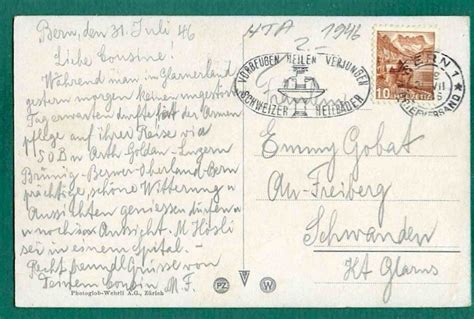 Bern, den 31. Juli 46
Liebe Cousine!
Während man im Glarnerland
gestern morgen keinen ungestimm
Tag erwarten durfte hat der Armen
pflege auf ihrer Reise via
S O B n Arth-Goldau-Luzern
Brünig-Berner-Oberland-Bern
prächtige, schöne Witterung u
Aussichten geniessen dürfen u
noch in Aussicht. M Hösli
ist in einem Spital.-
Recht freundl Grüsse von
Deinem Cousin M. F.
Photoglob-Wehrli A.G., Zürich
PZ
W
HTA 1946
2.-
VORBEUGEN HEILEN VERJÜNGEN
SCHWEIZER HEILBÄDER
10
HELVETIA
BERN 1
BRIEFVERSAND
Emmy Gobat
Au-Freiberg
Schwanden
Kt Glarus